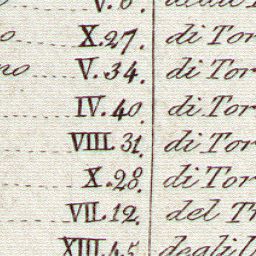 X.27. di Tor
no V.34. di Tor
IV.40. di Tor
VIII.31. di Tor
X.28. di Tor
VII.12. del T
XIII.45. degli U